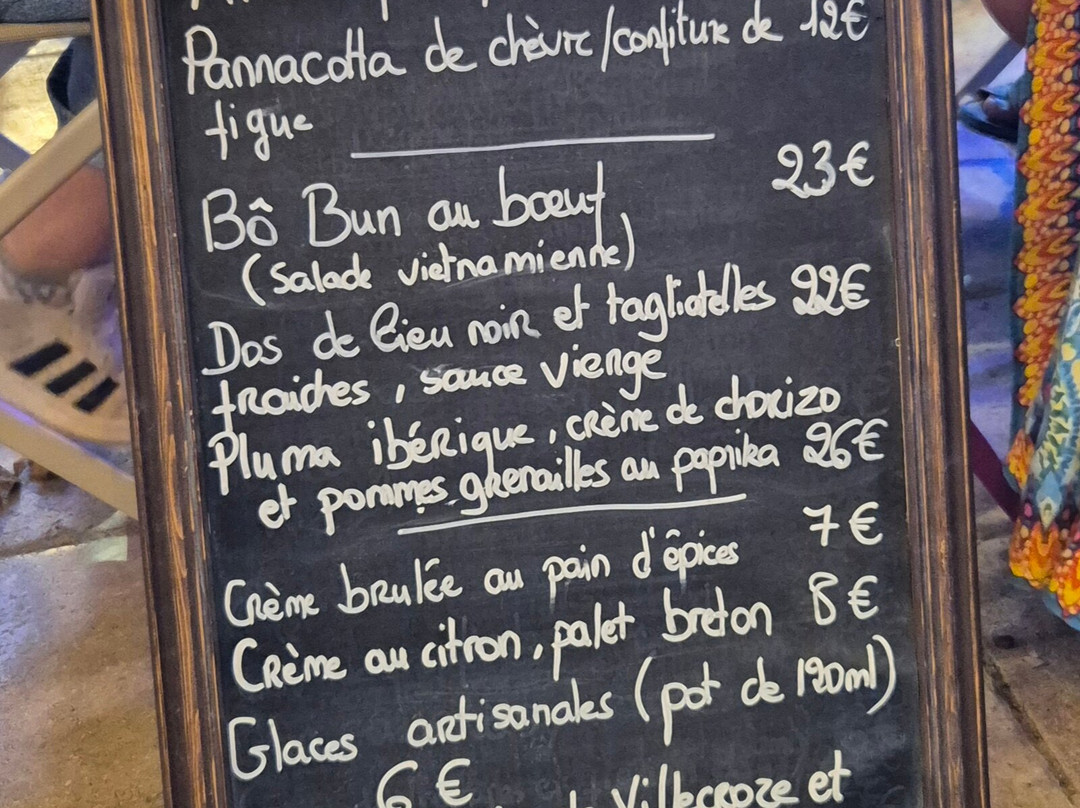 Pannacotta de chèvre/confiture de 12€
figue
Bô Bun au boeuf 23€
(Salade vietnamienne)
Dos de lieu noir et tagliatelles 22€
fraiches, sauce vierge
Pluma ibérique, crème de chorizo
et pommes grenailles au paprika 26€
Crème brulée au pain d'épices 7€
Crème au citron, palet breton 8€
Glaces artisanales (pot de 120ml)
6€
Villecroze et